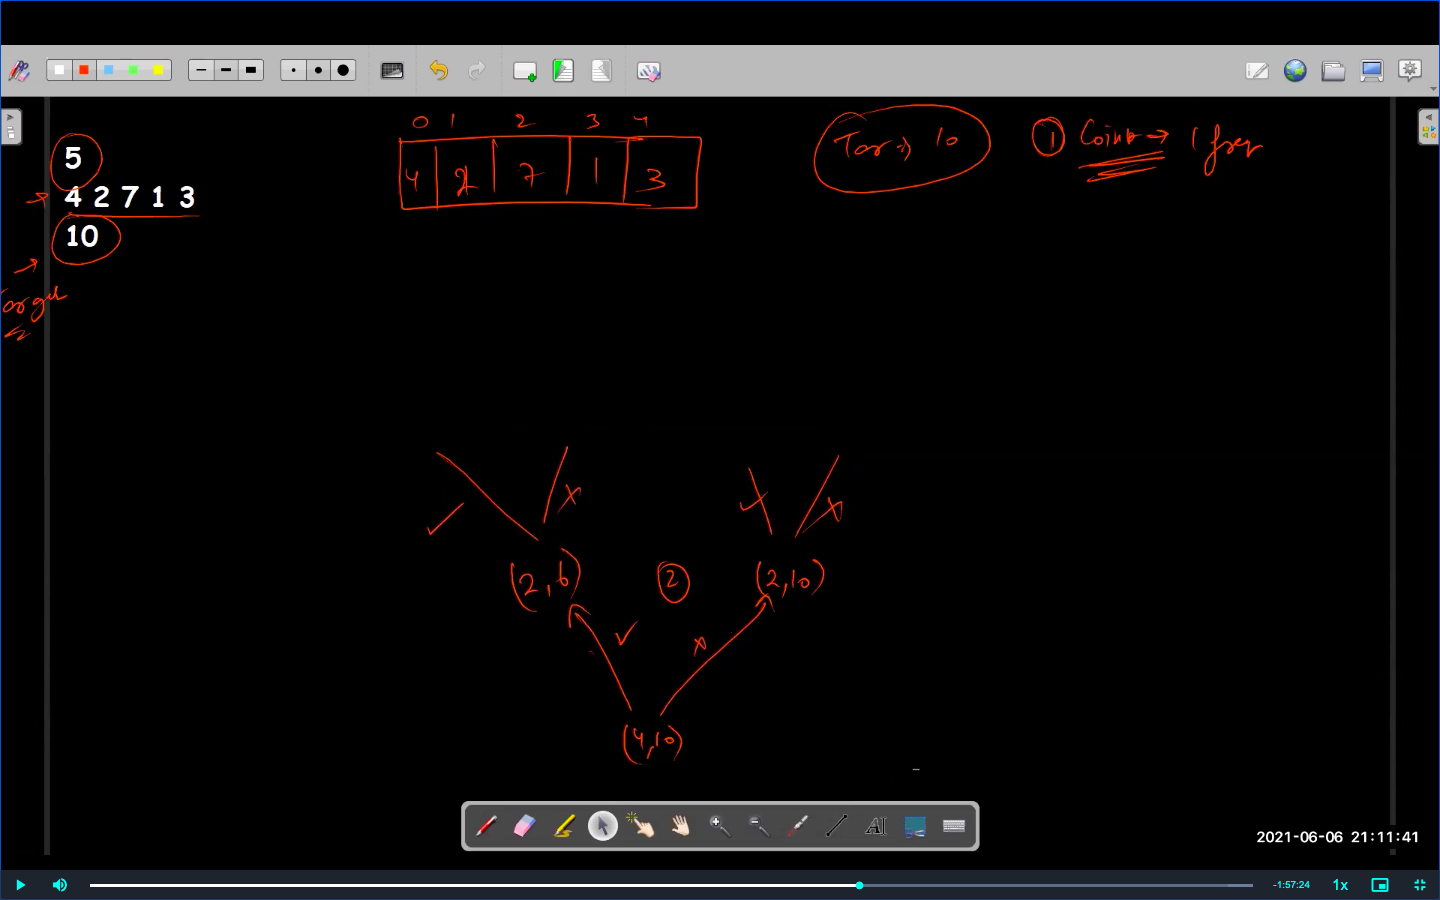 5
4 2 7 1 3
10
0 1 2 3 4
4 2 7 1 3
Tar → 10
① Coins → 1 freq
(2, 6) ② (2, 10)
(4, 10)
AI
2021-06-06 21:11:41
-1:57:24 1x